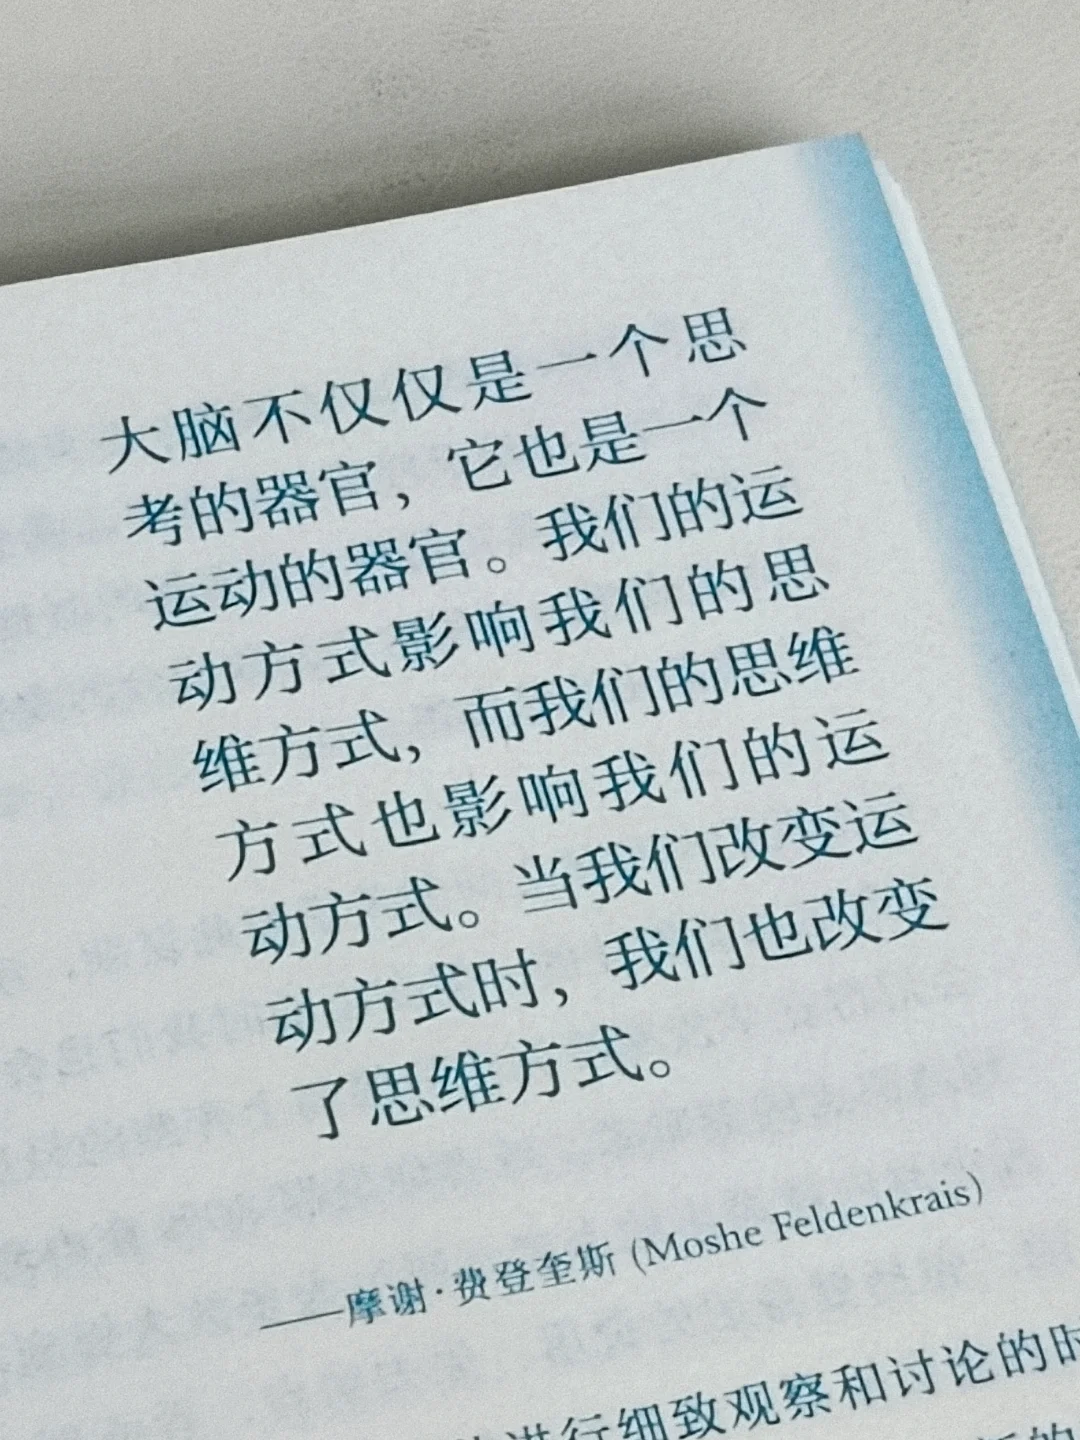 大脑不仅仅是一个思
考的器官，它也是一个
运动的器官。我们的运
动方式影响我们的思
维方式，而我们的思维
方式也影响我们的运
动方式。当我们改变运
动方式时，我们也改变
了思维方式。
——摩谢·费登奎斯 (Moshe Feldenkrais)
进行细致观察和讨论的时